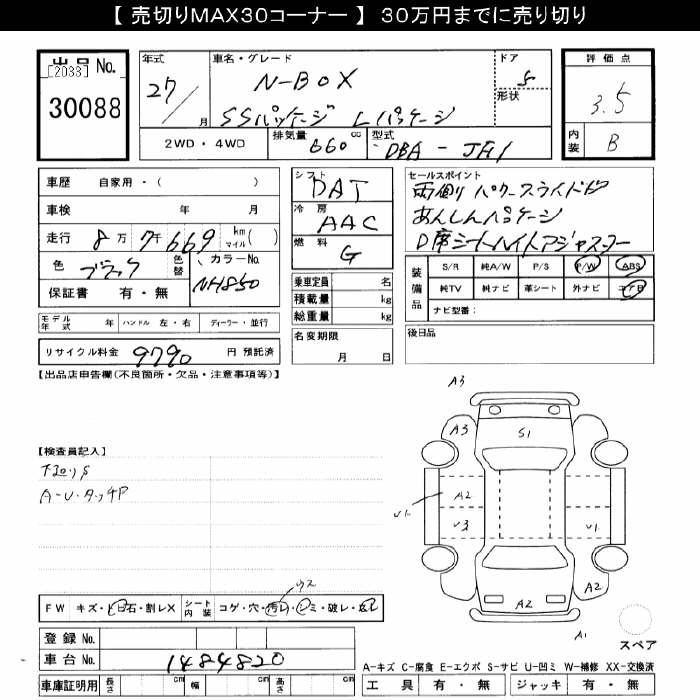 【 売切りMAX30コーナー 】 30万円までに売り切り
出品 No.
[2033]
30088
年式
27/ 月
車名・グレード
N-BOX
SSパッケージ Lパッケージ
ドア
5
形状
評価点
3.5
内装
B
2WD・4WD
排気量
660 cc
型式
DBA-JF1
車歴 自家用・( )
車検 年 月
走行 8万7千669 km マイル( )
色 ブラック
色替
カラーNo.
NH850
保証書 有・無
シフト
DAT
冷房
AAC
燃料
G
乗車定員 名
積載量 kg
総重量 kg
セールスポイント
両側パワースライドドア
あんしんパッケージ
D席シートハイトアジャスター
装備品
S/R 純A/W P/S P/W ABS
純TV 純ナビ 革シート 外ナビ エアB
ナビ型番:
モデル年式 年 ハンドル 左・右 ディーラー・並行
名変期限
月 日
後日品
リサイクル料金 9790 円 預託済
【出品店申告欄(不良箇所・欠品・注意事項等)】
【検査員記入】
下回りS
A-U・タッチP
A3
A3
S1
A2
U1
U3
U1
A2
A2
A1
スペア
FW キズ・ヒ石・割レX
シート内装
コゲ・穴・汚レ・シミ・破レ・
ウス
登録 No.
車台 No. 1484820
車庫証明用 長さ cm 幅 cm 高さ cm
A-キズ C-腐食 E-エクボ S-サビ U-凹ミ W-補修 XX-交換済
工具 有・無 ジャッキ 有・無